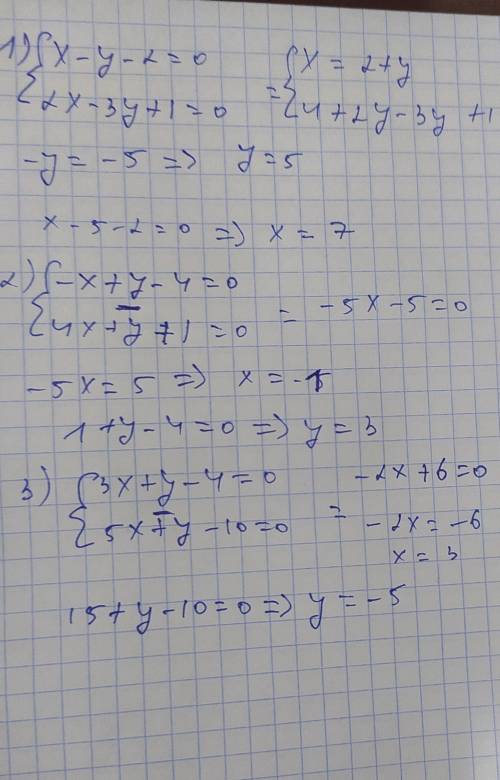 1) { x - y - 2 = 0    { x = 2 + y
{ 2x - 3y + 1 = 0  = { 4 + 2y - 3y + 1
-y = -5 => y = 5
x - 5 - 2 = 0 => x = 7
2) { -x + y - 4 = 0
{ 4x + y + 1 = 0  = -5x - 5 = 0
-5x = 5 => x = -1
1 + y - 4 = 0 => y = 3
3) { 3x + y - 4 = 0    -2x + 6 = 0
{ 5x + y - 10 = 0  = -2x = -6
x = 3
15 + y - 10 = 0 => y = -5